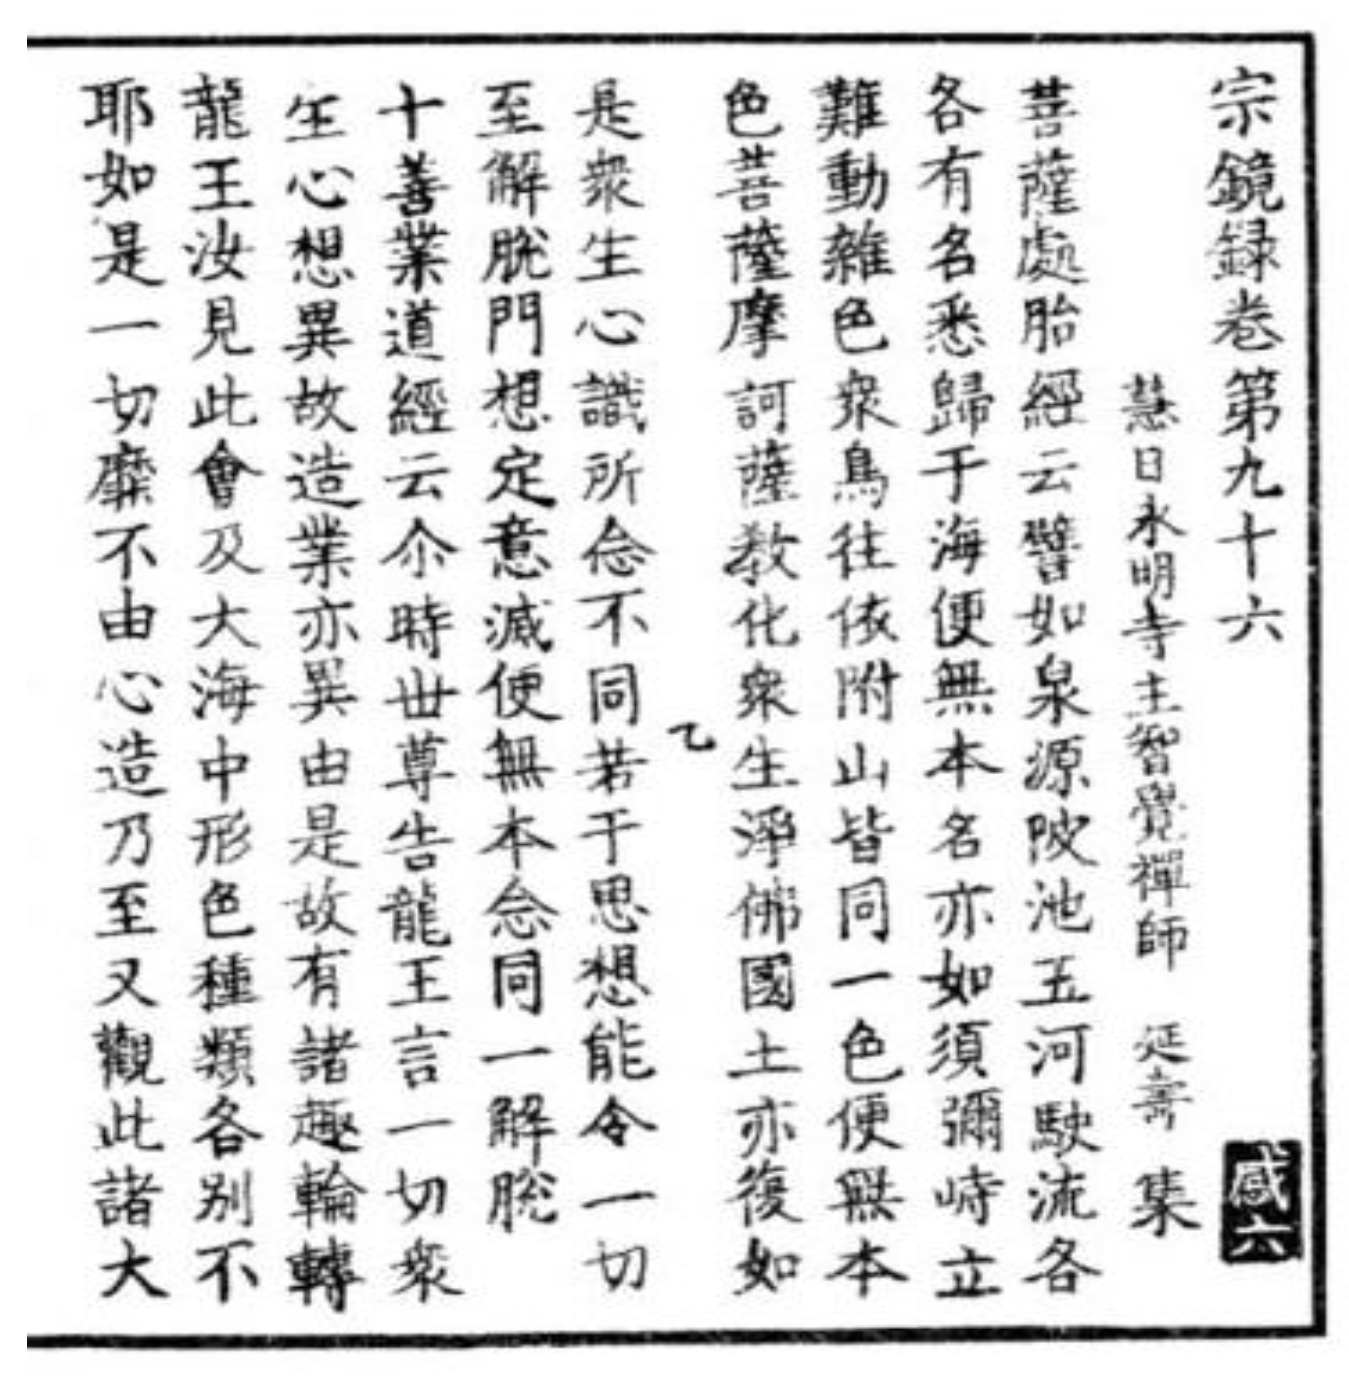 宗鏡録巻第九十六
感六
慧日永明寺主智覺禪師 延壽 集
菩薩處胎經云譬如泉源陂池五河駛流各
各有名悉歸于海便無本名亦如須彌峙立
難動雜色衆鳥往依附山皆同一色便無本
色菩薩摩訶薩教化衆生淨佛國土亦復如
乙
是衆生心識所念不同若干思想能令一切
至解脫門想定意滅便無本念同一解脫
十善業道經云尒時世尊告龍王言一切衆
生心想異故造業亦異由是故有諸趣輪轉
龍王汝見此會及大海中形色種類各別不
耶如是一切靡不由心造乃至又觀此諸大